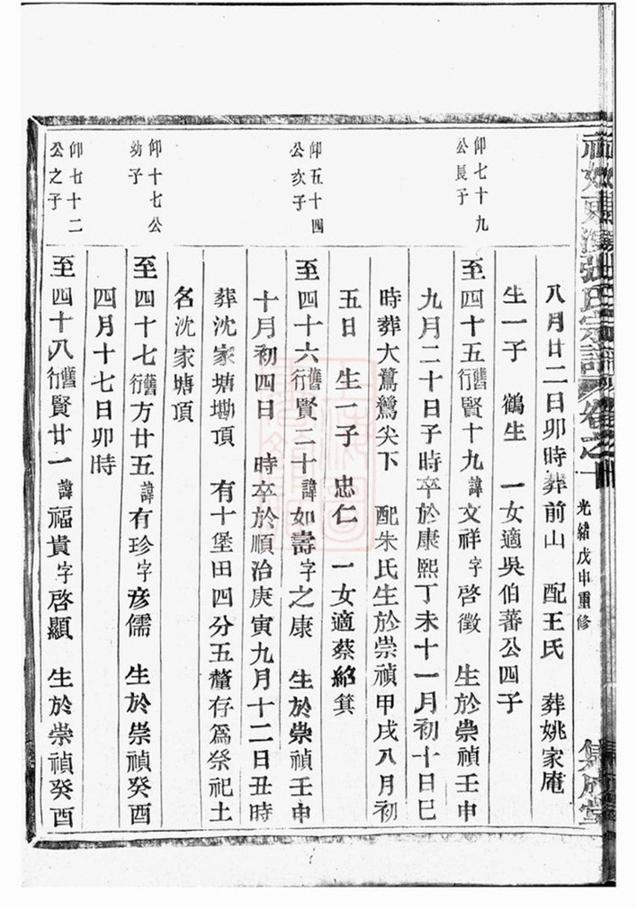 張氏宗譜卷之
光緒戊申重修
集成堂
八月廿二日卯時葬前山 配王氏 葬姚家庵
生一子 鶴生 一女適吳伯蕃公四子
仰七十九
公長子
至四十五舊行賢十九諱文祥字啓徵 生於崇禎壬申
九月二十日子時卒於康熙丁未十一月初十日巳
時葬大鵞鶿尖下 配朱氏生於崇禎甲戌八月初
五日 生一子 忠仁 一女適蔡紹箕
仰五十四
公次子
至四十六舊行賢二十諱如壽字之康 生於崇禎壬申
十月初四日 時卒於順治庚寅九月十二日丑時
葬沈家塘墈頂 有十堡田四分五釐存爲祭祀土
名沈家塘頂
仰十七公
幼子
至四十七舊行方廿五諱有珍字彦儒 生於崇禎癸酉
四月十七日卯時
仰七十二
公之子
至四十八舊行賢廿一諱福貴字啓顯 生於崇禎癸酉